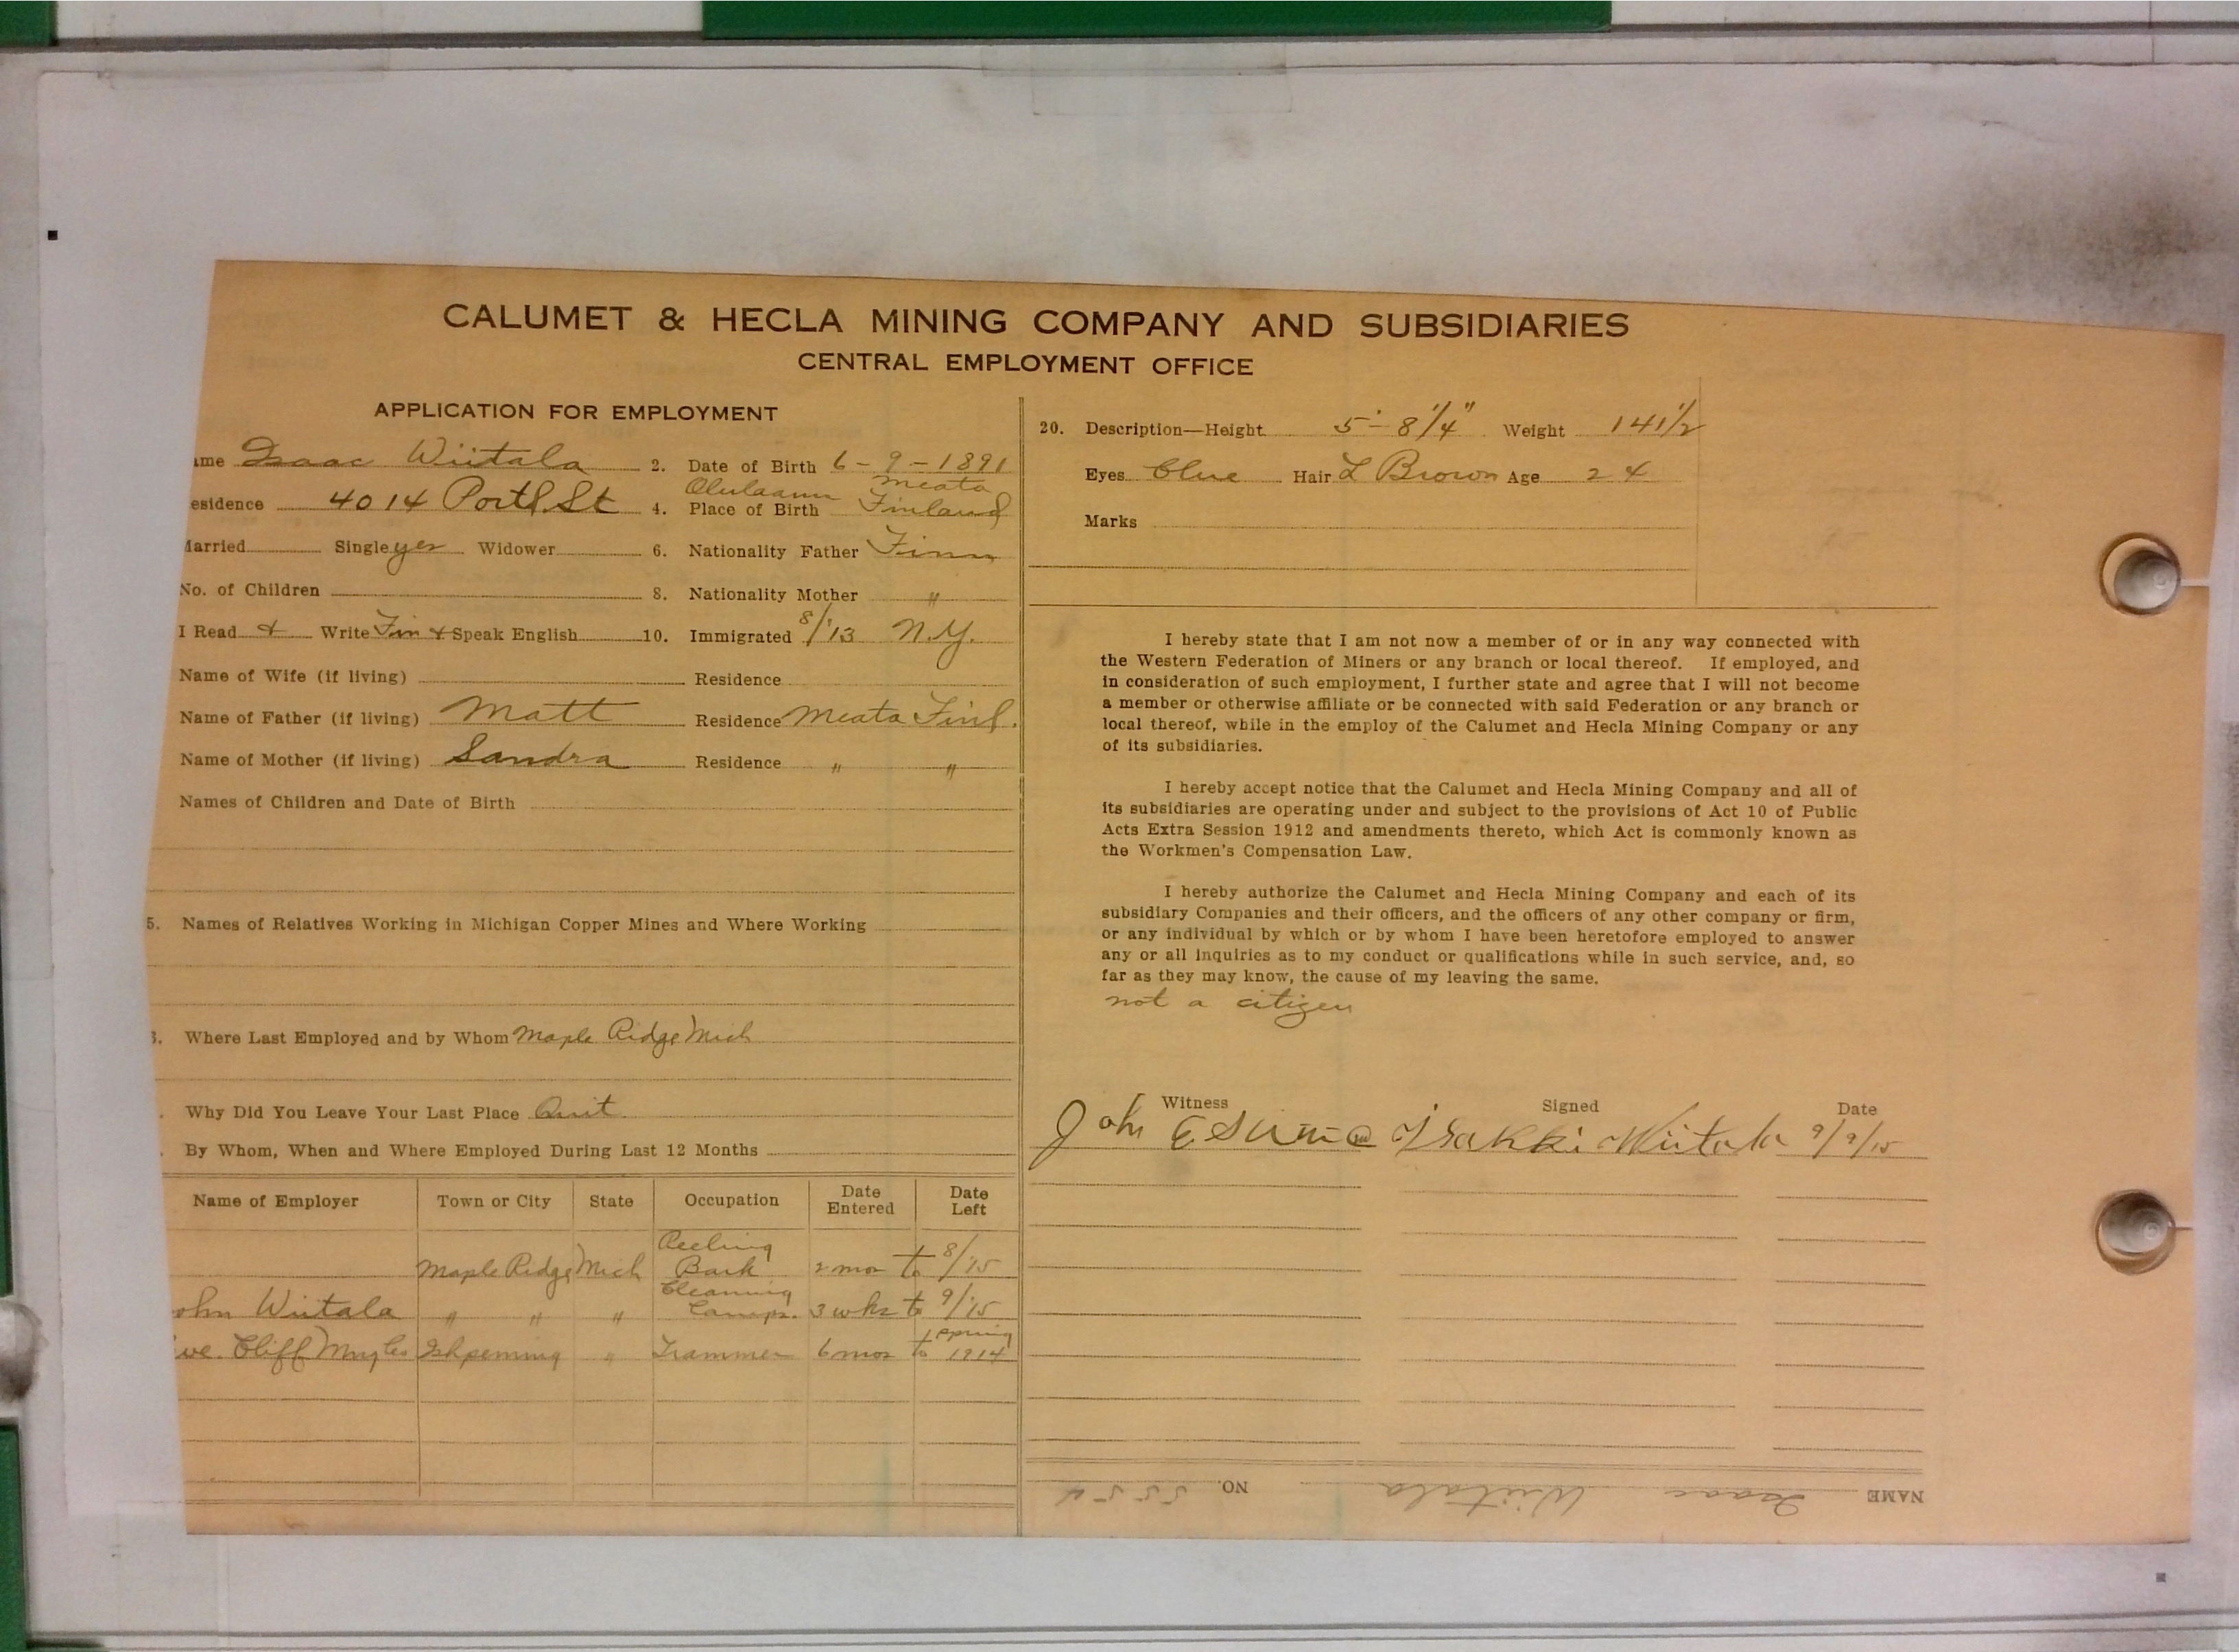 CALUMET & HECLA MINING COMPANY AND SUBSIDIARIES
CENTRAL EMPLOYMENT OFFICE
APPLICATION FOR EMPLOYMENT
ame Isaac Wiitala 2. Date of Birth 6-9-1891
Meata
esidence 4014 Portl. St 4. Place of Birth Finland
Married Single yes Widower 6. Nationality Father Finn
No. of Children 8. Nationality Mother "
I Read & Write Fin & Speak English 10. Immigrated 8/'13 N.Y.
Name of Wife (if living) Residence
Name of Father (if living) Matt Residence Meata Finl.
Name of Mother (if living) Sandra Residence " "
Names of Children and Date of Birth
5. Names of Relatives Working in Michigan Copper Mines and Where Working
Where Last Employed and by Whom Maple Ridge Mich
Why Did You Leave Your Last Place Quit
By Whom, When and Where Employed During Last 12 Months
Name of Employer Town or City State Occupation Date Entered Date Left
Peeling
Maple Ridge Mich Bark 2 mos to 8/'15
Cleaning
ohn Wiitala " " " Camps. 3 wks to 9/'15
spring
ve. Cliff Ishpeming " Trammer 6 mos to 1914
20. Description—Height 5'-8 1/4" Weight 141 1/2
Eyes Blue Hair L Brown Age 24
Marks
I hereby state that I am not now a member of or in any way connected with
the Western Federation of Miners or any branch or local thereof. If employed, and
in consideration of such employment, I further state and agree that I will not become
a member or otherwise affiliate or be connected with said Federation or any branch or
local thereof, while in the employ of the Calumet and Hecla Mining Company or any
of its subsidiaries.
I hereby accept notice that the Calumet and Hecla Mining Company and all of
its subsidiaries are operating under and subject to the provisions of Act 10 of Public
Acts Extra Session 1912 and amendments thereto, which Act is commonly known as
the Workmen's Compensation Law.
I hereby authorize the Calumet and Hecla Mining Company and each of its
subsidiary Companies and their officers, and the officers of any other company or firm,
or any individual by which or by whom I have been heretofore employed to answer
any or all inquiries as to my conduct or qualifications while in such service, and, so
far as they may know, the cause of my leaving the same.
not a citizen
Witness Signed Date
John Iisakki Wiitala 9/9/15
NAME Isaac Wiitala NO. 5554